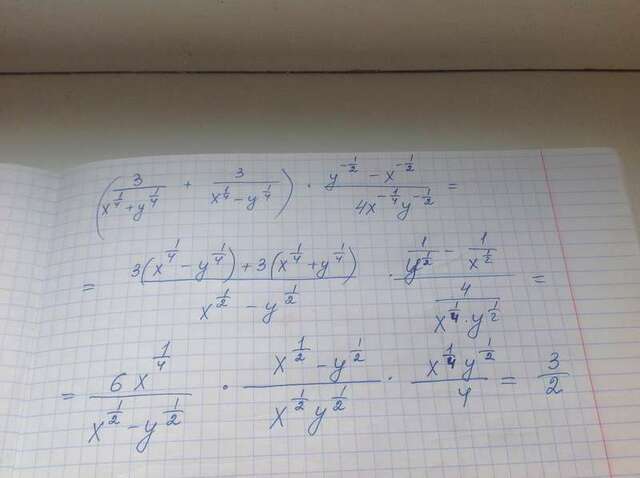 (3/(x^(1/4) + y^(1/4)) + 3/(x^(1/4) − y^(1/4))) · (y^(-1/2) − x^(-1/2))/(4x^(-1/4)y^(-1/2)) =
= (3(x^(1/4) − y^(1/4)) + 3(x^(1/4) + y^(1/4)))/(x^(1/2) − y^(1/2)) · (1/y^(1/2) − 1/x^(1/2))/(4/(x^(1/4) · y^(1/2))) =
= 6x^(1/4)/(x^(1/2) − y^(1/2)) · (x^(1/2) − y^(1/2))/(x^(1/2) y^(1/2)) · (x^(1/4) y^(1/2))/4 = 3/2